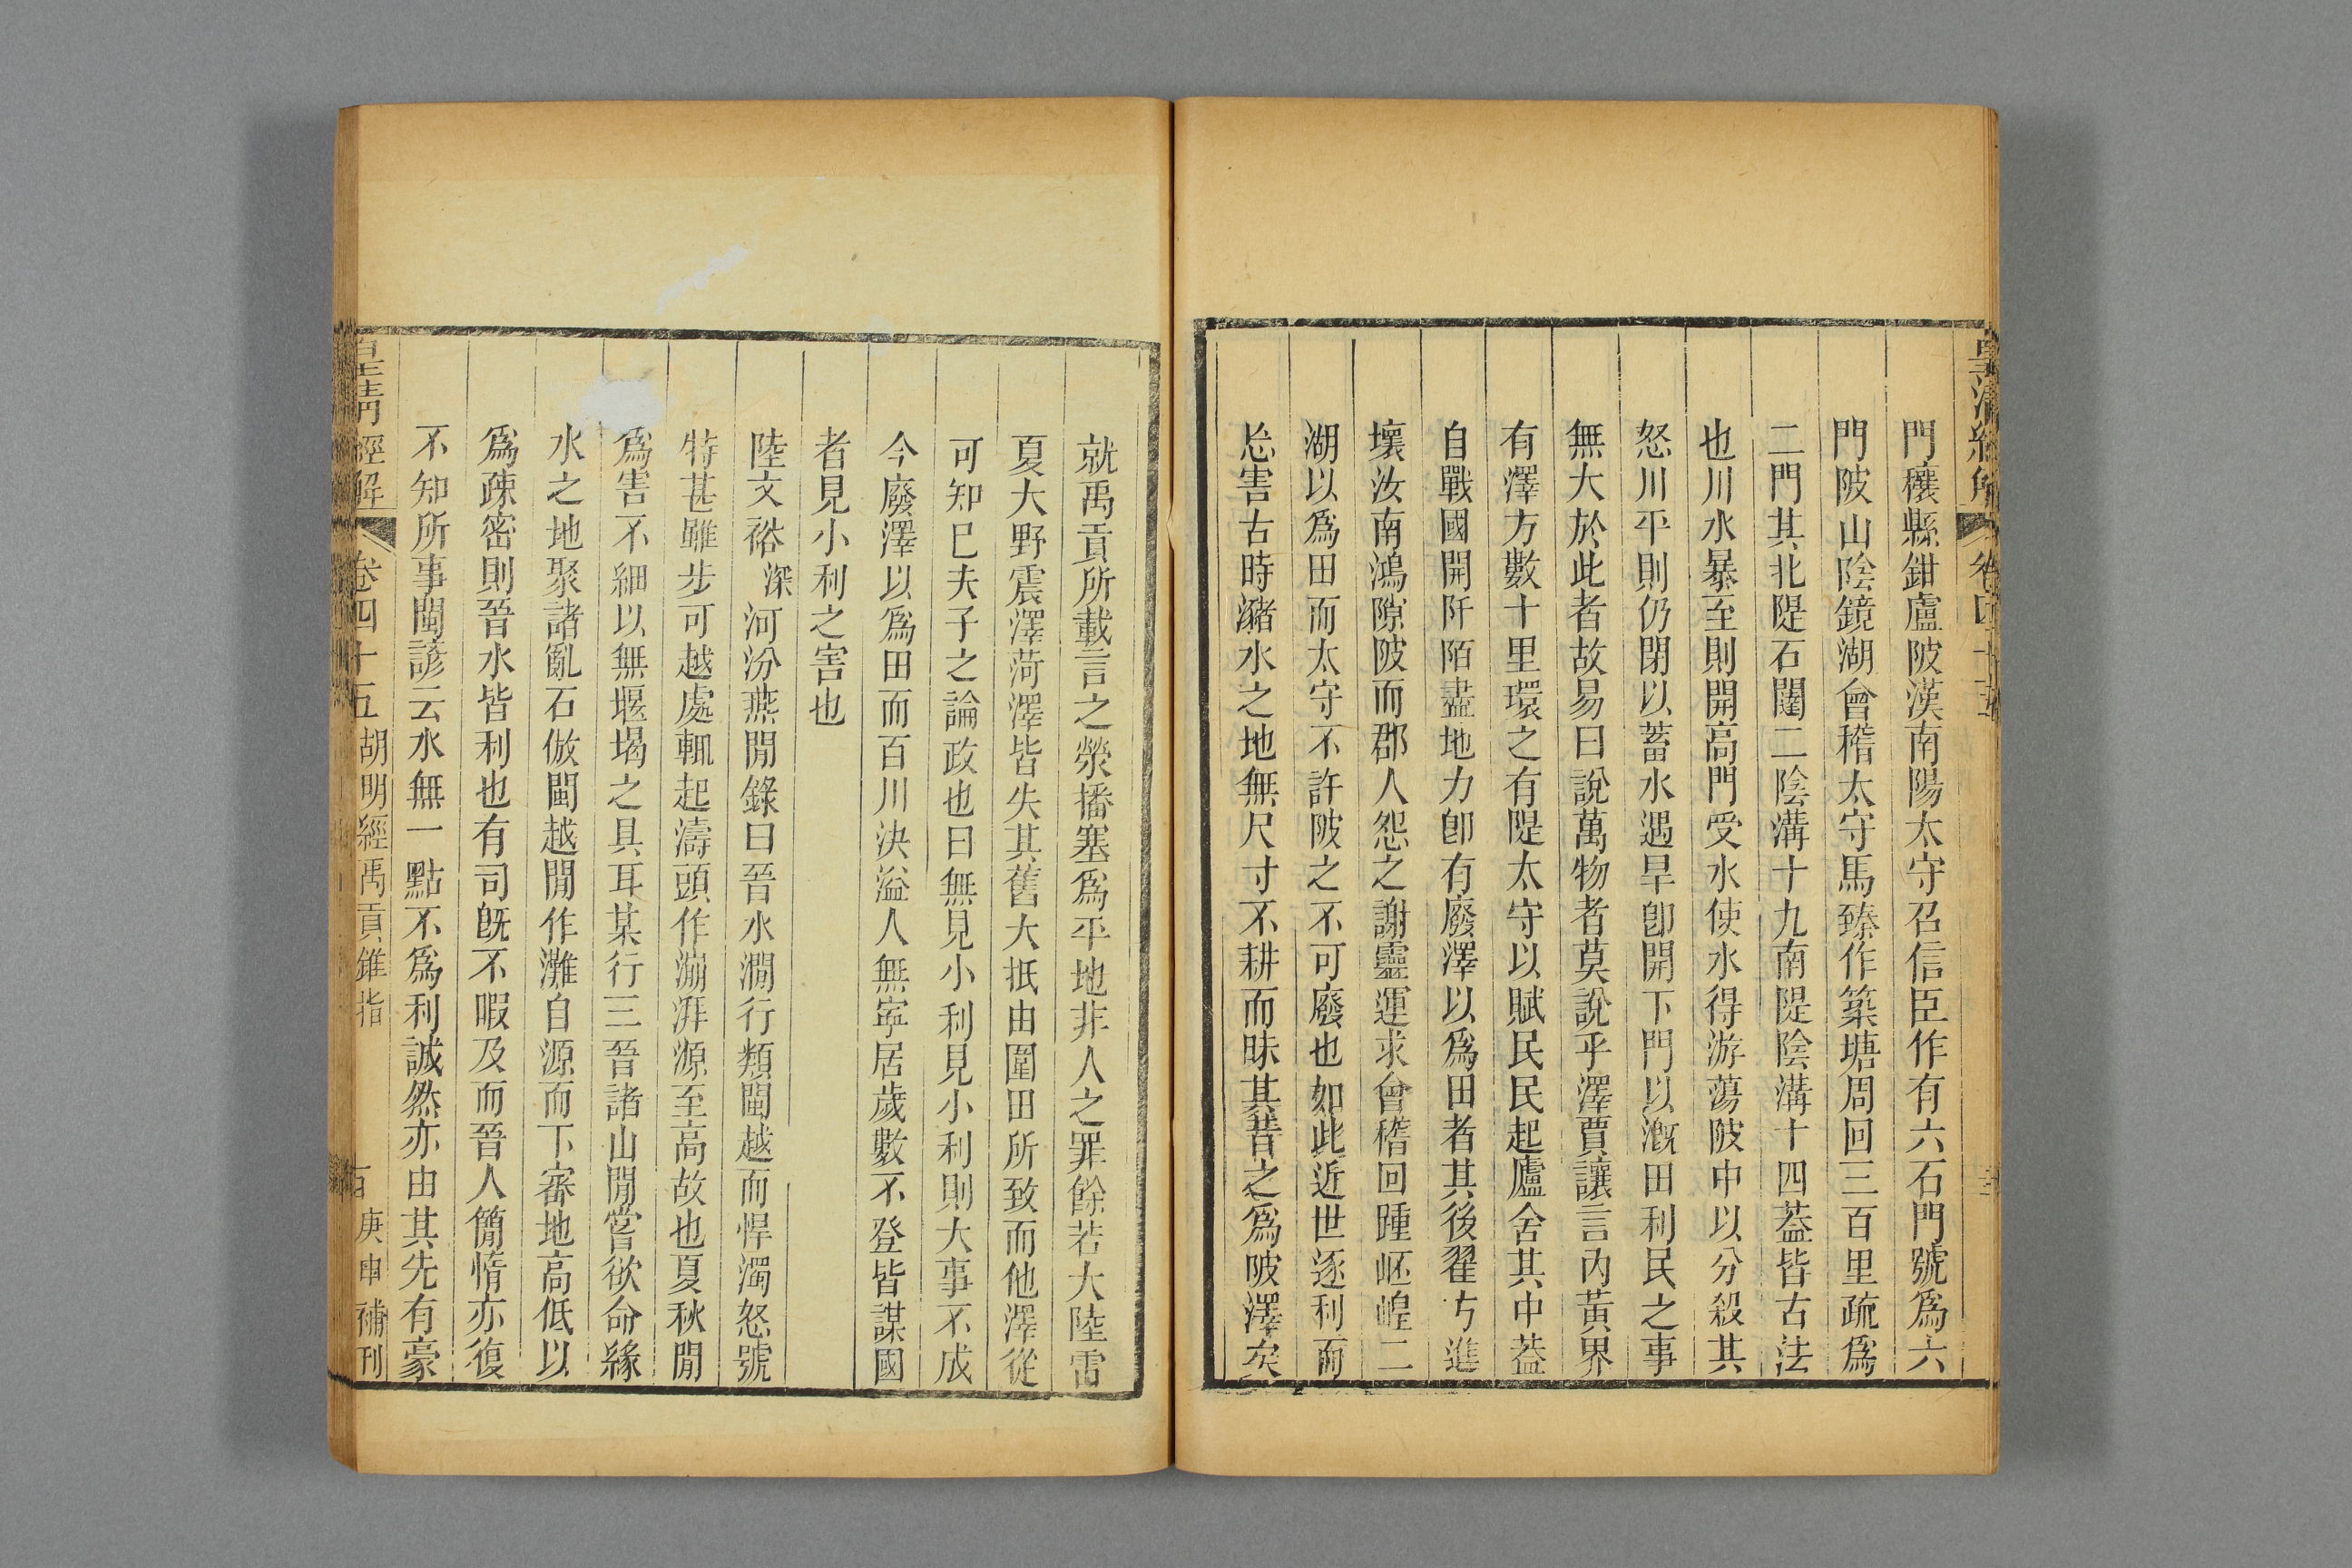 皇清經解 卷四十五
門穰縣鉗盧陂漢南陽太守召信臣作有六石門號爲六
門陂山陰鏡湖會稽太守馬臻作築塘周回三百里疏爲
二門其北隄石闥二陰溝十九南隄陰溝十四葢皆古法
也川水暴至則開高門受水使水得游蕩陂中以分殺其
怒川平則仍閉以蓄水遇旱卽開下門以漑田利民之事
無大於此者故易曰說萬物者莫說乎澤賈讓言內黃界
有澤方數十里環之有隄太守以賦民民起廬舍其中葢
自戰國開阡陌盡地力卽有廢澤以爲田者其後翟方進
壞汝南鴻隙陂而郡人怨之謝靈運求會稽回踵岠崲二
湖以爲田而太守不許陂之不可廢也如此近世逐利而
忘害古時瀦水之地無尺寸不耕而昧其昔之爲陂澤矣
就禹貢所載言之滎播塞爲平地非人之罪餘若大陸雷
夏大野震澤菏澤皆失其舊大抵由圍田所致而他澤從
可知已夫子之論政也曰無見小利見小利則大事不成
今廢澤以爲田而百川決溢人無寧居歲數不登皆謀國
者見小利之害也
陸文裕深河汾燕閒錄曰晉水澗行類閩越而悍濁怒號
特甚雖步可越處輒起濤頭作漰湃源至高故也夏秋閒
爲害不細以無堰堨之具耳某行三晉諸山閒嘗欲命緣
水之地聚諸亂石倣閩越閒作灘自源而下審地高低以
爲疎密則晉水皆利也有司旣不暇及而晉人簡惰亦復
不知所事閩諺云水無一點不爲利誠然亦由其先有豪
皇清經解 卷四十五 胡明經禹貢錐指 庚申補刊